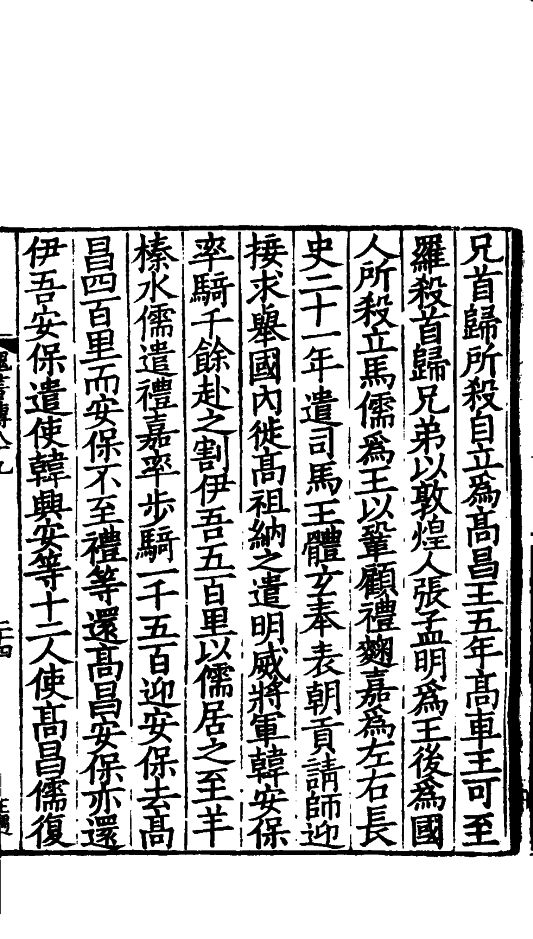 兄首歸所殺自立爲髙昌王五年髙車王可至
羅殺首歸兄弟以敦煌人張孟明爲王後爲國
人所殺立馬儒爲王以鞏顧禮麴嘉爲左右長
史二十一年遣司馬王體玄奉表朝貢請師迎
接求舉國內徙髙祖納之遣明威將軍韓安保
率騎千餘赴之割伊吾五百里以儒居之至羊
榛水儒遣禮嘉率步騎一千五百迎安保去髙
昌四百里而安保不至禮等還髙昌安保亦還
伊吾安保遣使韓興安等十二人使髙昌儒復